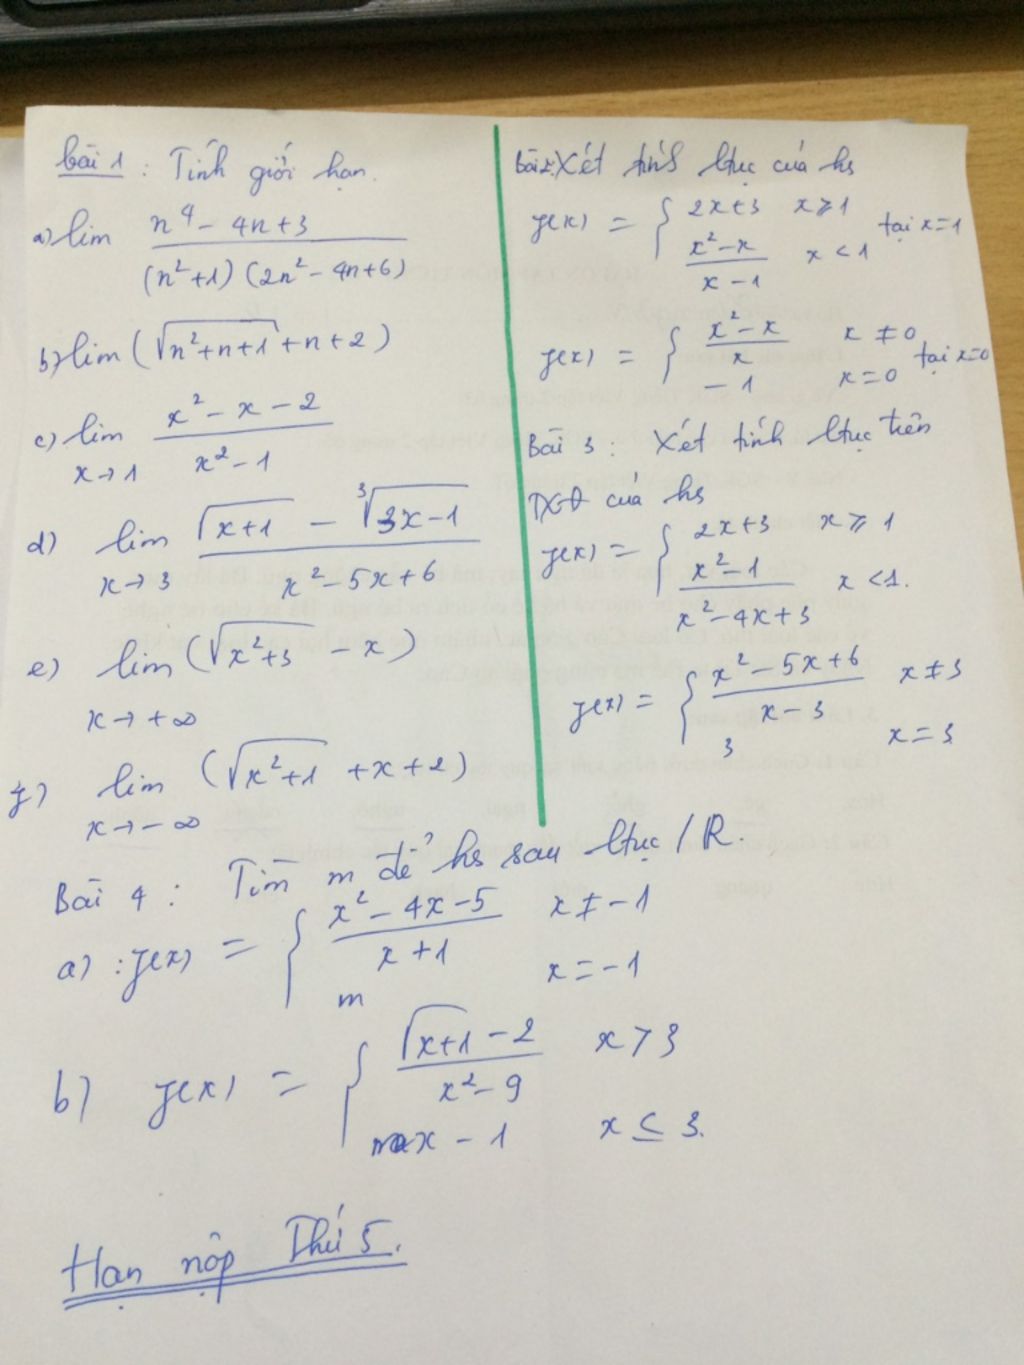 bài 1 : Tính giới hạn.
a) lim (n^4 - 4n + 3) / ((n^2+1)(2n^2 - 4n + 6))
b) lim (√(n^2+n+1) + n + 2)
c) lim x→1 (x^2 - x - 2) / (x^2 - 1)
d) lim x→3 (√(x+1) - ∛(3x-1)) / (x^2 - 5x + 6)
e) lim x→+∞ (√(x^2+3) - x)
f) lim x→-∞ (√(x^2+1) + x + 2)
bài 2: Xét tính ltục của hs
f(x) = { 2x+3 x ⩾ 1
(x^2 - x) / (x - 1) x < 1 tại x=1
f(x) = { (x^2 - x) / x x ≠ 0
-1 x = 0 tại x=0
Bài 3 : Xét tính ltục trên
TXĐ của hs
f(x) = { 2x+3 x ⩾ 1
(x^2 - 1) / (x^2 - 4x + 3) x < 1.
f(x) = { (x^2 - 5x + 6) / (x - 3) x ≠ 3
3 x = 3
Bài 4 : Tìm m để hs sau ltục / R.
a) : f(x) = { (x^2 - 4x - 5) / (x + 1) x ≠ -1
m x = -1
b) f(x) = { (√(x+1) - 2) / (x^2 - 9) x > 3
mx - 1 x ≤ 3.
Hạn nộp Thứ 5.